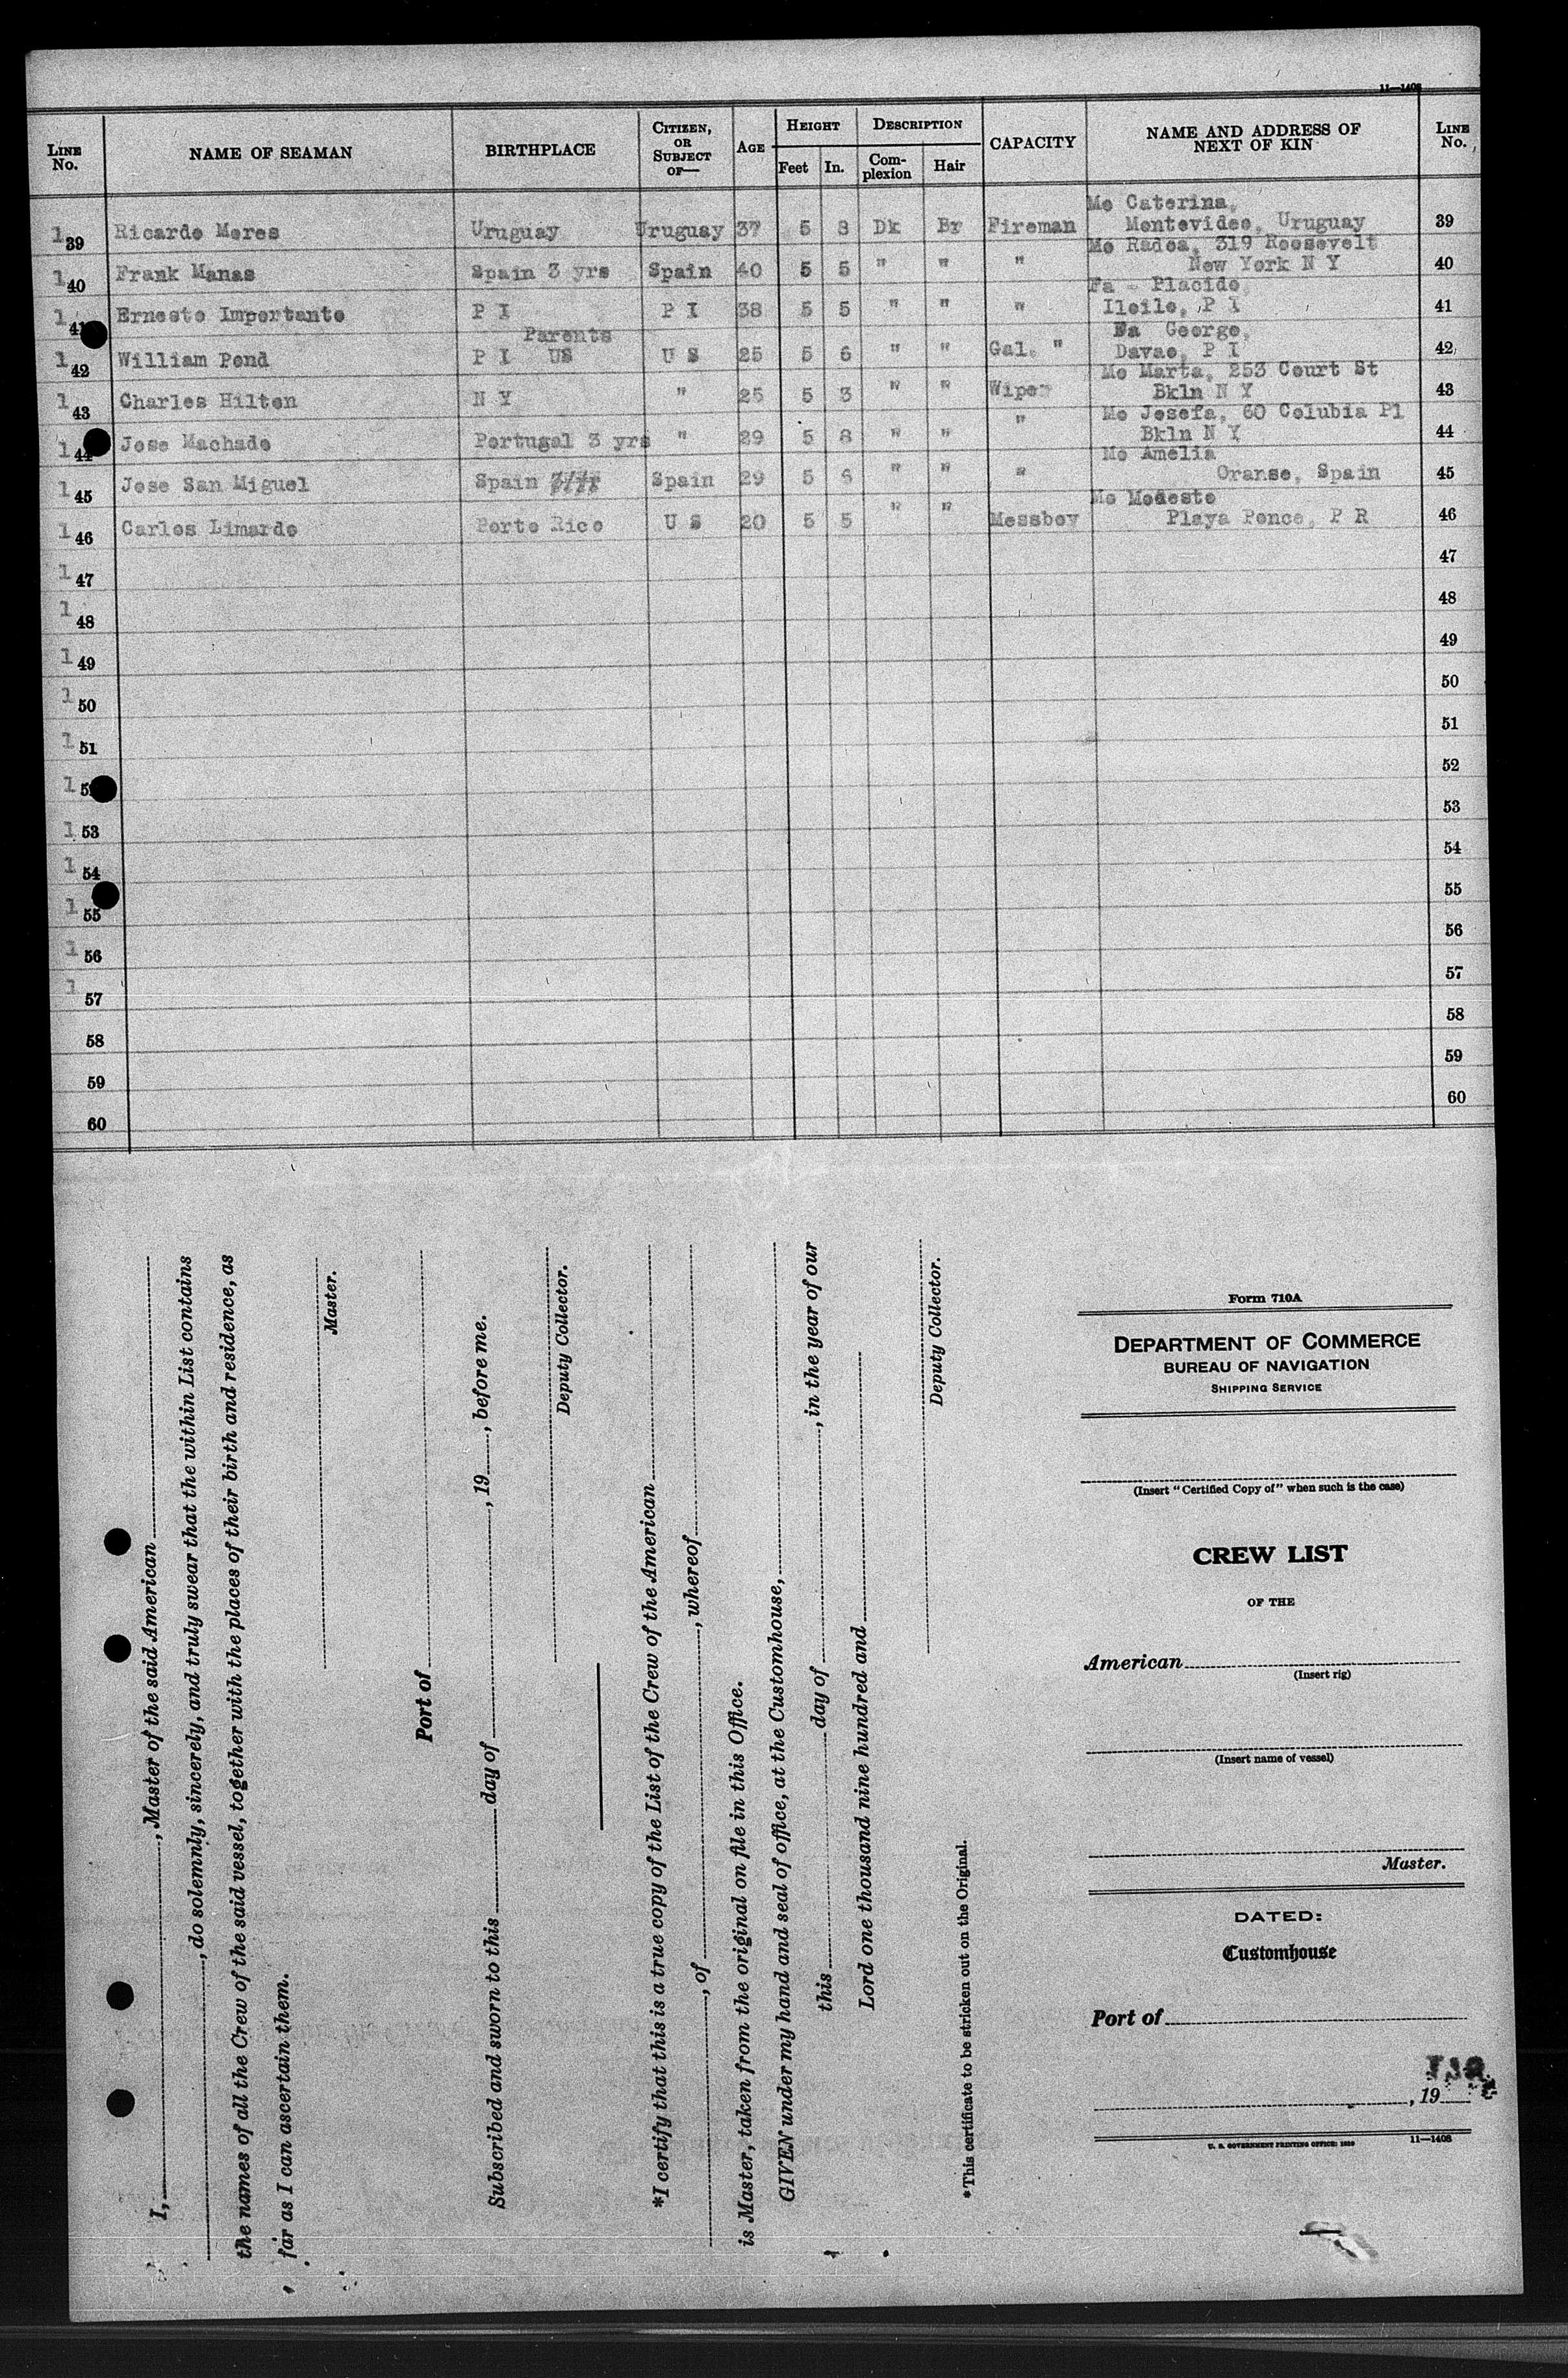 11—1408
LINE No. NAME OF SEAMAN BIRTHPLACE CITIZEN, OR SUBJECT OF— AGE HEIGHT Feet In. DESCRIPTION Complexion Hair CAPACITY NAME AND ADDRESS OF NEXT OF KIN LINE No.
Mo Caterina,
1 39 Ricardo Meres Uruguay Uruguay 37 5 8 Dk Br Fireman Montevideo, Uruguay 39
Mo Radea, 319 Roosevelt
1 40 Frank Manas Spain 3 yrs Spain 40 5 5 " " " New York N Y 40
Fa - Placido,
1 41 Ernesto Importante P I P I 38 5 5 " " " Iloilo, P I 41
Parents Fa George,
1 42 William Pond P I US U S 25 5 6 " " Gal. " Davao, P I 42
Mo Marta, 253 Court St
1 43 Charles Hilton N Y " 25 5 3 " " Wiper Bkln N Y 43
Mo Josefa, 60 Colubia Pl
1 44 Jose Machado Portugal 3 yrs " 29 5 8 " " " Bkln N Y 44
Mo Amelia
1 45 Jose San Miguel Spain Spain 29 5 6 " " " Oranse, Spain 45
Mo Modesto
1 46 Carlos Limardo Porto Rico U S 20 5 5 " " Messboy Playa Ponce, P R 46
1 47 47
1 48 48
1 49 49
1 50 50
1 51 51
1 52
1 53 53
1 54 54
1 55 55
1 56 56
1 57 57
58 58
59 59
60 60
I, , Master of the said American
, do solemnly, sincerely, and truly swear that the within List contains
the names of all the Crew of the said vessel, together with the places of their birth and residence, as
far as I can ascertain them.
Master.
Port of
Subscribed and sworn to this day of , 19 , before me.
Deputy Collector.
*I certify that this is a true copy of the List of the Crew of the American
, of , whereof
is Master, taken from the original on file in this Office.
GIVEN under my hand and seal of office, at the Customhouse,
this day of , in the year of our
Lord one thousand nine hundred and
Deputy Collector.
*This certificate to be stricken out on the Original.
Form 710A
DEPARTMENT OF COMMERCE
BUREAU OF NAVIGATION
SHIPPING SERVICE
(Insert "Certified Copy of" when such is the case)
CREW LIST
OF THE
American
(Insert rig)
(Insert name of vessel)
Master.
DATED:
Customhouse
Port of
, 19
U. S. GOVERNMENT PRINTING OFFICE: 11—1408